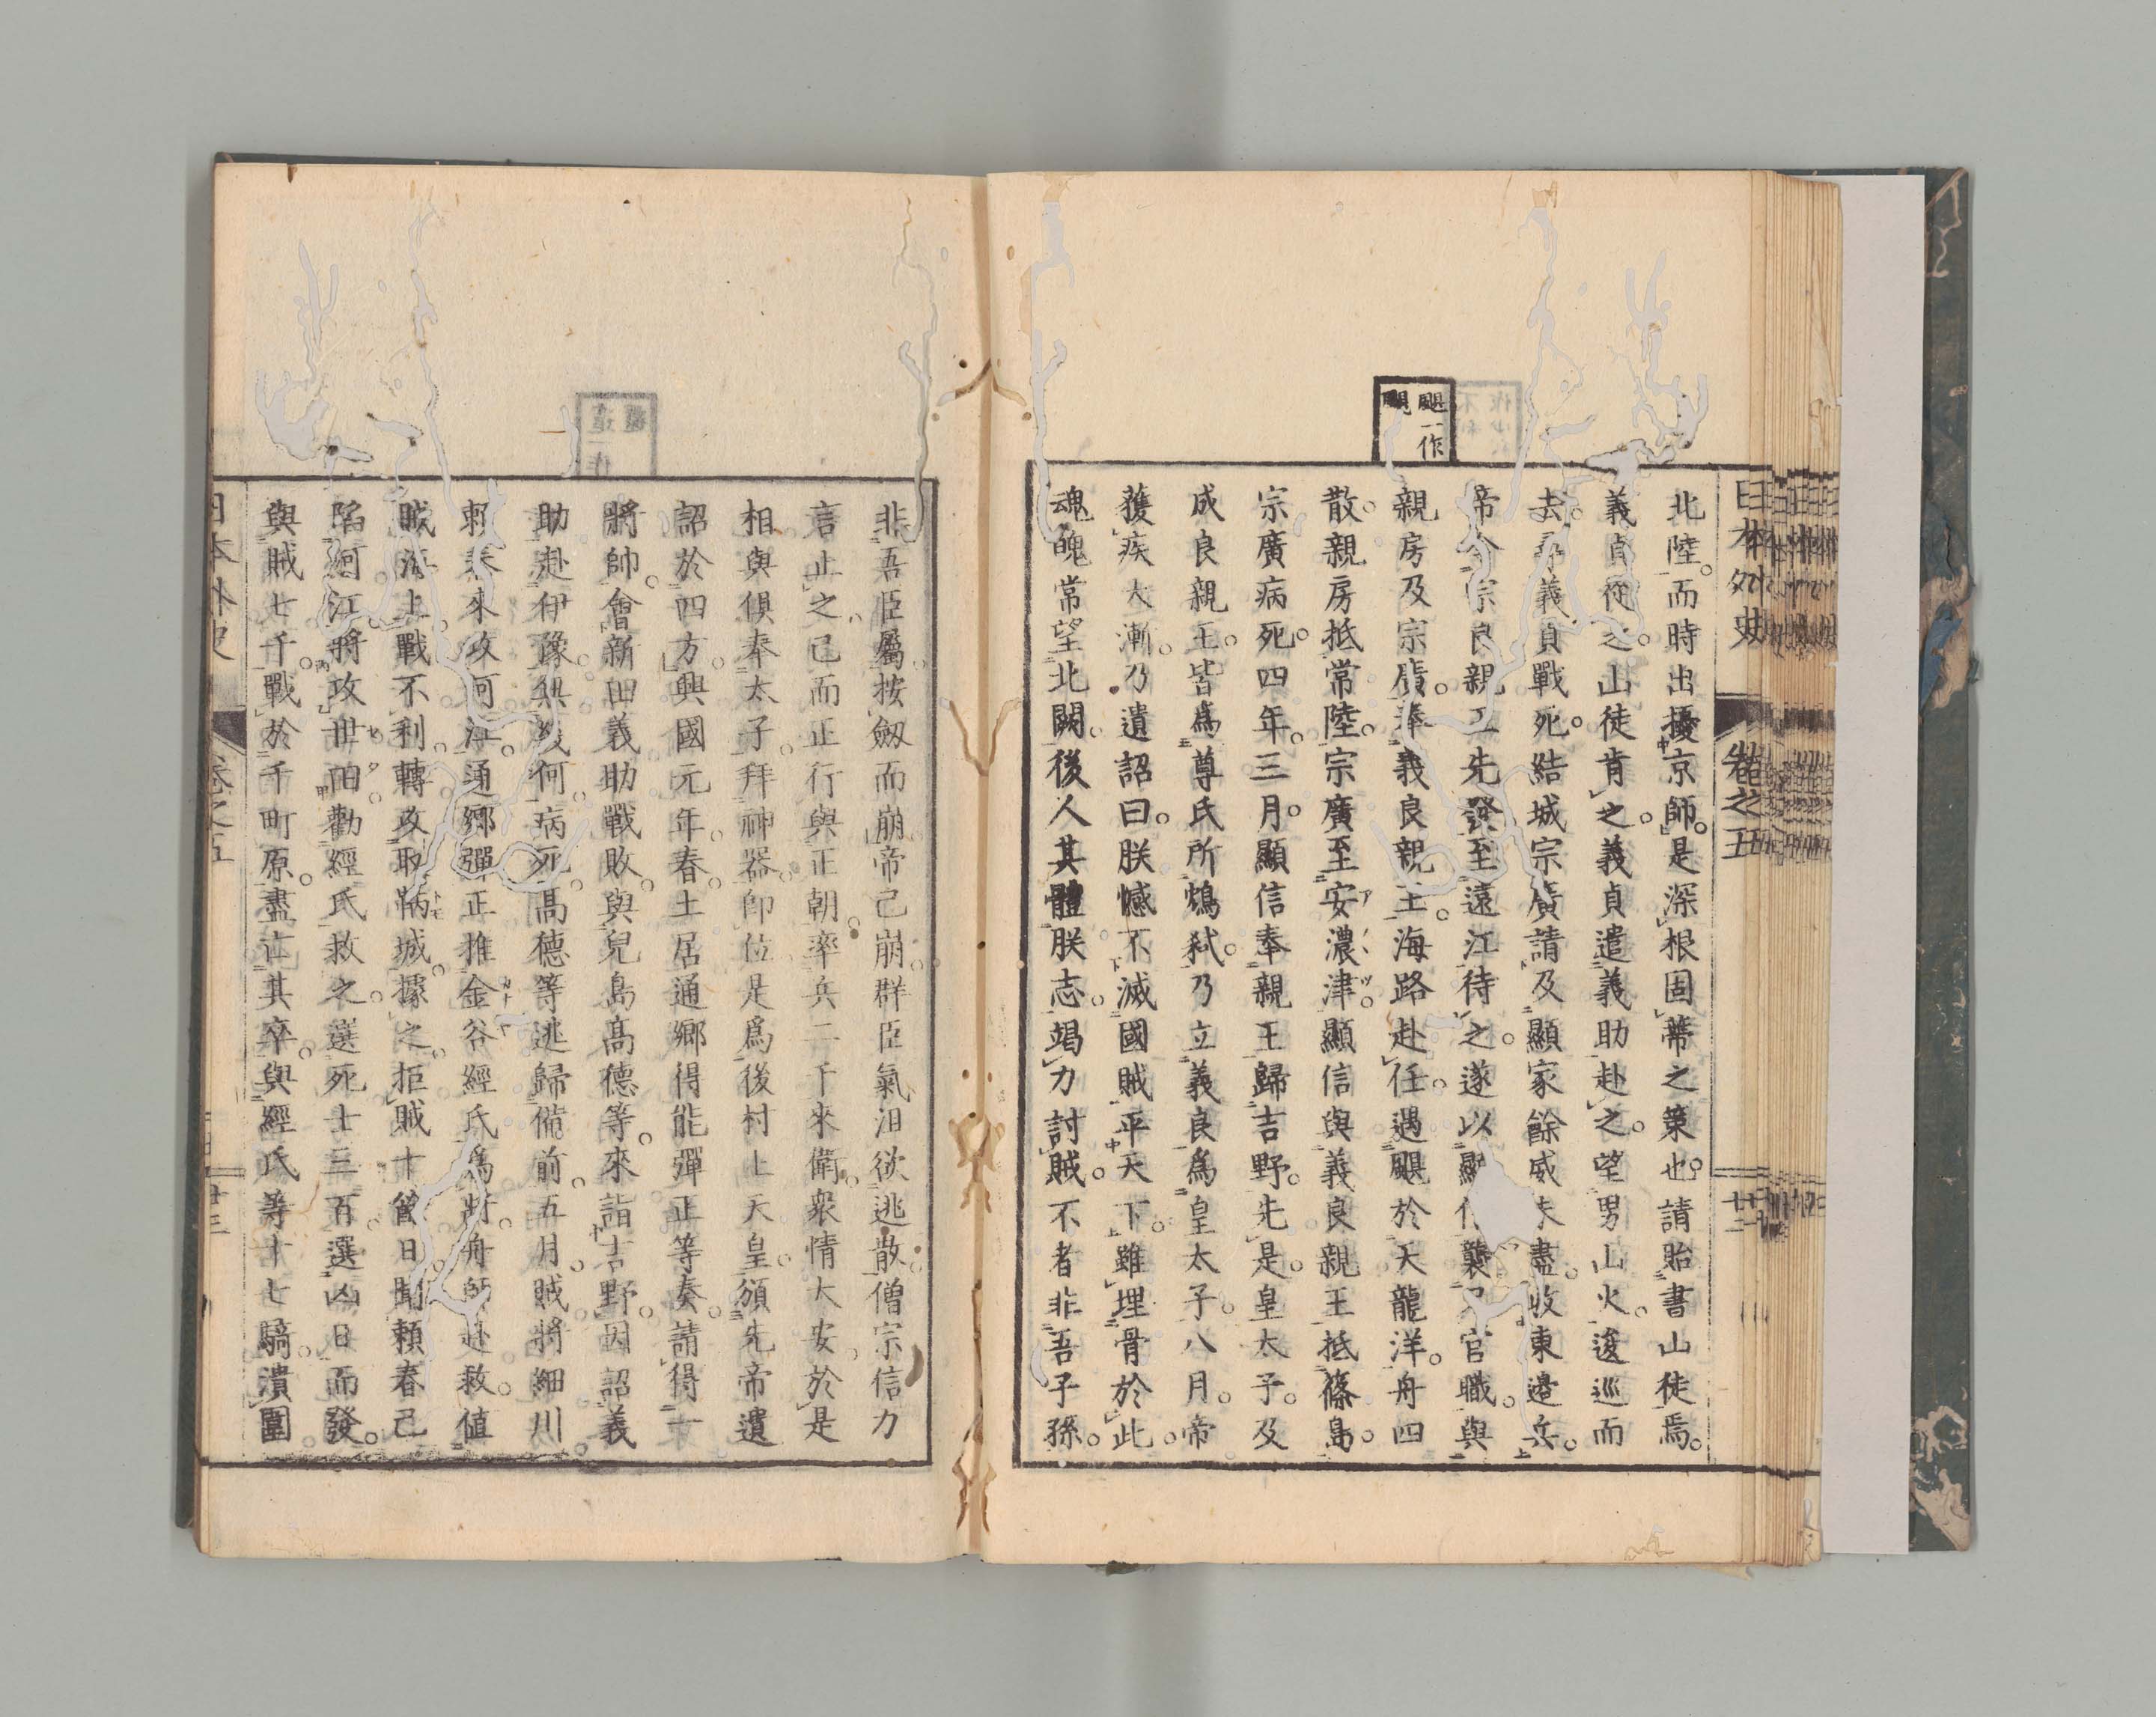 日本外史
卷之五
廿二
颶一作
颶
北陸。而時出擾京師。是深根固蔕之策也。請貽書山徒焉。
義貞從之。山徒肯之。義貞遣義助赴之。望男山火。逡巡而
去。尋義貞戰死。結城宗廣請及顯家餘威未盡。收東邊兵。
帝令宗良親王先發至遠江待之。遂以顯信襲官職。與
親房及宗廣。奉義良親王。海路赴任。遇颶於天龍洋。舟四
散。親房抵常陸。宗廣至安濃津。顯信與義良親王抵篠島。
宗廣病死。四年。三月。顯信奉親王歸吉野。先是。皇太子。及
成良親王。皆爲尊氏所鴆弑。乃立義良爲皇太子。八月。帝
獲疾大漸。乃遺詔曰。朕憾不滅國賊平天下。雖埋骨於此。
魂魄常望北闕。後人其體朕志。竭力討賊。不者非吾子孫。
非吾臣屬。按劔而崩。帝已崩。群臣氣沮欲逃散。僧宗信力
言止之。已而正行與正朝。率兵二千來衛。衆情大安。於是
相與倶奉太子。拜神器。卽位。是爲後村上天皇。頒先帝遺
詔於四方。興國元年。春。土居通鄉得能彈正等奏。請得一
將帥。會新田義助戰敗。與兒島高德等。來詣吉野。因詔義
助赴伊豫。無幾何。病死。高德等逃歸備前。五月。賊將細川
賴春來攻河江。通鄉彈正推金谷經氏爲將。舟師赴救。値
賊海上。戰不利。轉攻取鞆城。據之。拒賊十曾日。聞賴春已
陷河江。將攻世田。勸經氏救之。選死士三百。選凶日而發。
與賊七千。戰於千町原。盡亡其卒。與經氏等十七騎。潰圍
日本外史
卷之五
廿三